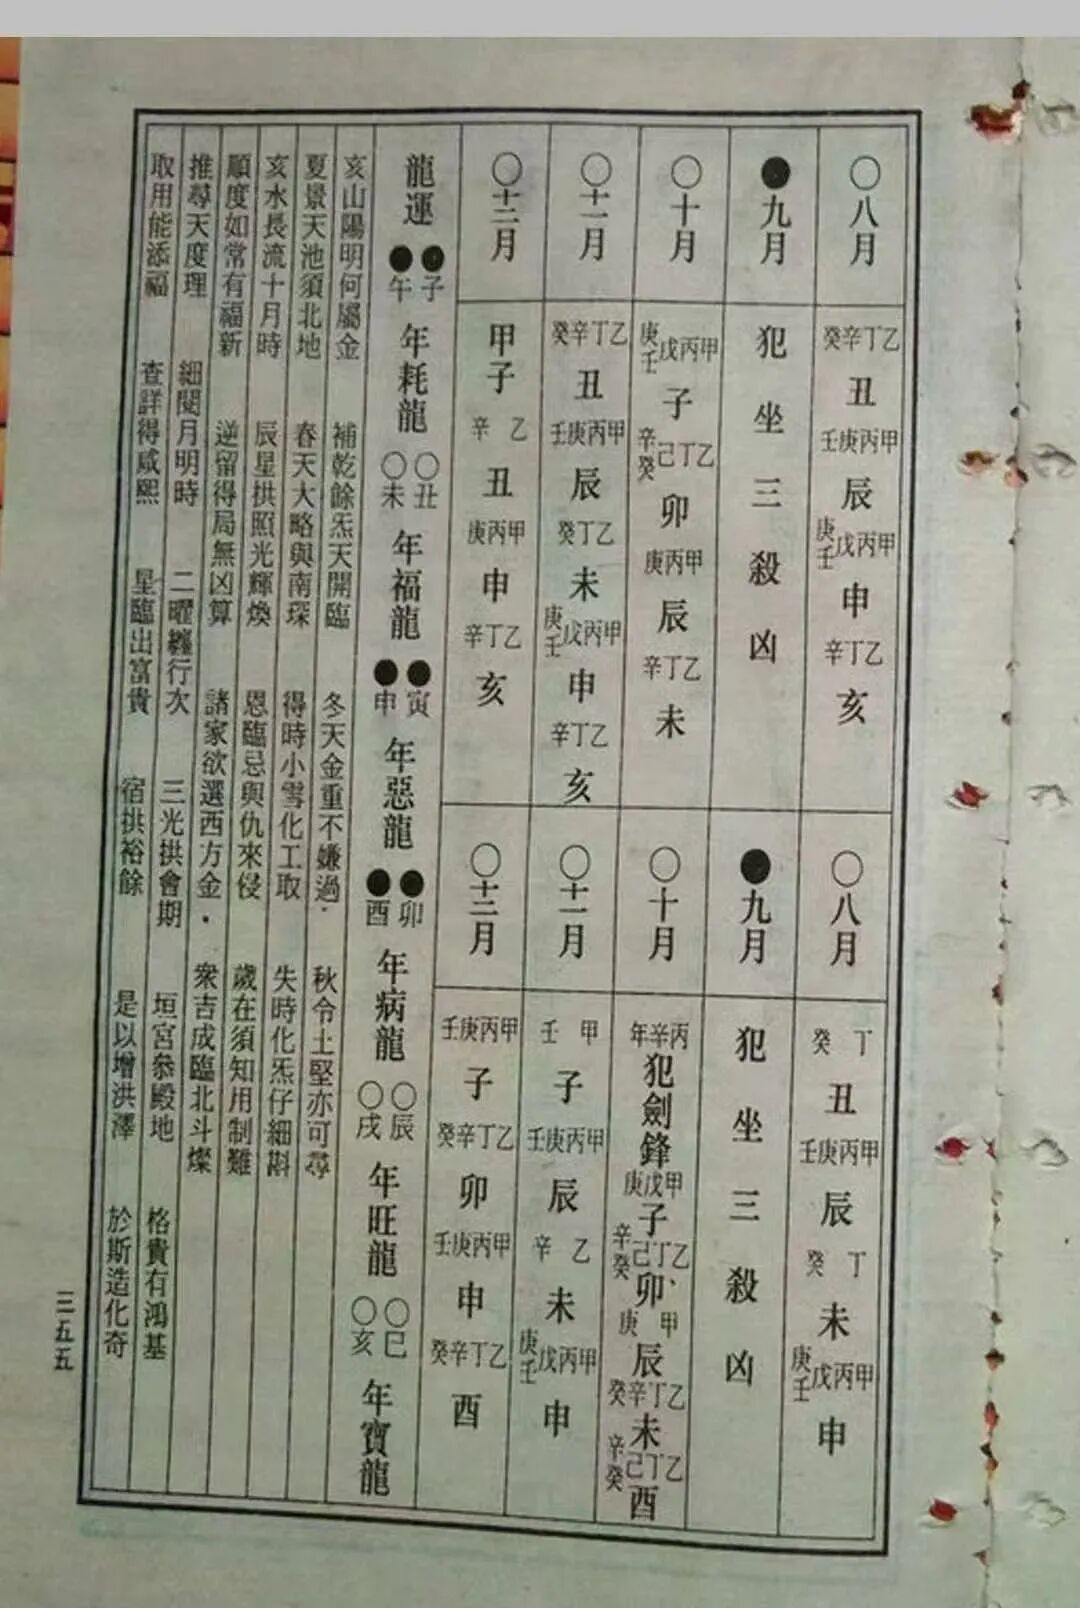 ○八月 乙丁辛癸丑 甲丙庚壬辰 甲丙戊庚壬申 乙丁辛亥
●九月 犯坐三殺凶
○十月 甲丙戊庚壬子 乙丁己辛癸卯 甲丙庚辰 乙丁辛未
○十一月 乙丁辛癸丑 甲丙庚壬辰 乙丁癸未 甲丙戊庚壬申 乙丁辛亥
○十二月 甲子 乙辛丑 甲丙庚申 乙丁辛亥
○八月 丁癸丑 甲丙庚壬辰 丁癸未 甲丙戊庚壬申
●九月 犯坐三殺凶
○十月 丙辛年犯劍鋒 甲戊庚子 乙丁己辛癸卯 甲庚辰 乙丁辛癸未 乙丁己辛癸酉
○十一月 甲壬子 甲丙庚壬辰 乙辛未 甲丙戊庚壬申
○十二月 甲丙庚壬子 乙丁辛癸卯 甲丙庚壬申 乙丁辛癸酉
龍運 ●子●午年耗龍 ○丑○未年福龍 ●寅●申年惡龍 ●卯●酉年病龍 ○辰○戌年旺龍 ○巳○亥年寶龍
亥山陽明何屬金 補乾餘炁天開臨 冬天金重不嫌過 秋令土堅亦可尋
夏景天池須北地 春天大略與南琛 得時小雪化工取 失時化炁仔細斟
亥水長流十月時 辰星拱照光輝煥 恩臨忌與仇來侵 歲在須知用制難
順度如常有福新 逆留得局無凶算 諸家欲選西方金 眾吉成臨北斗燦
推尋天度理 細閱月明時 二曜纏行次 三光拱會期 垣宮叅殿地 格貴有鴻基
取用能添福 查詳得咸熙 星臨出富貴 宿拱裕餘 是以增洪澤 於斯造化奇
三五五